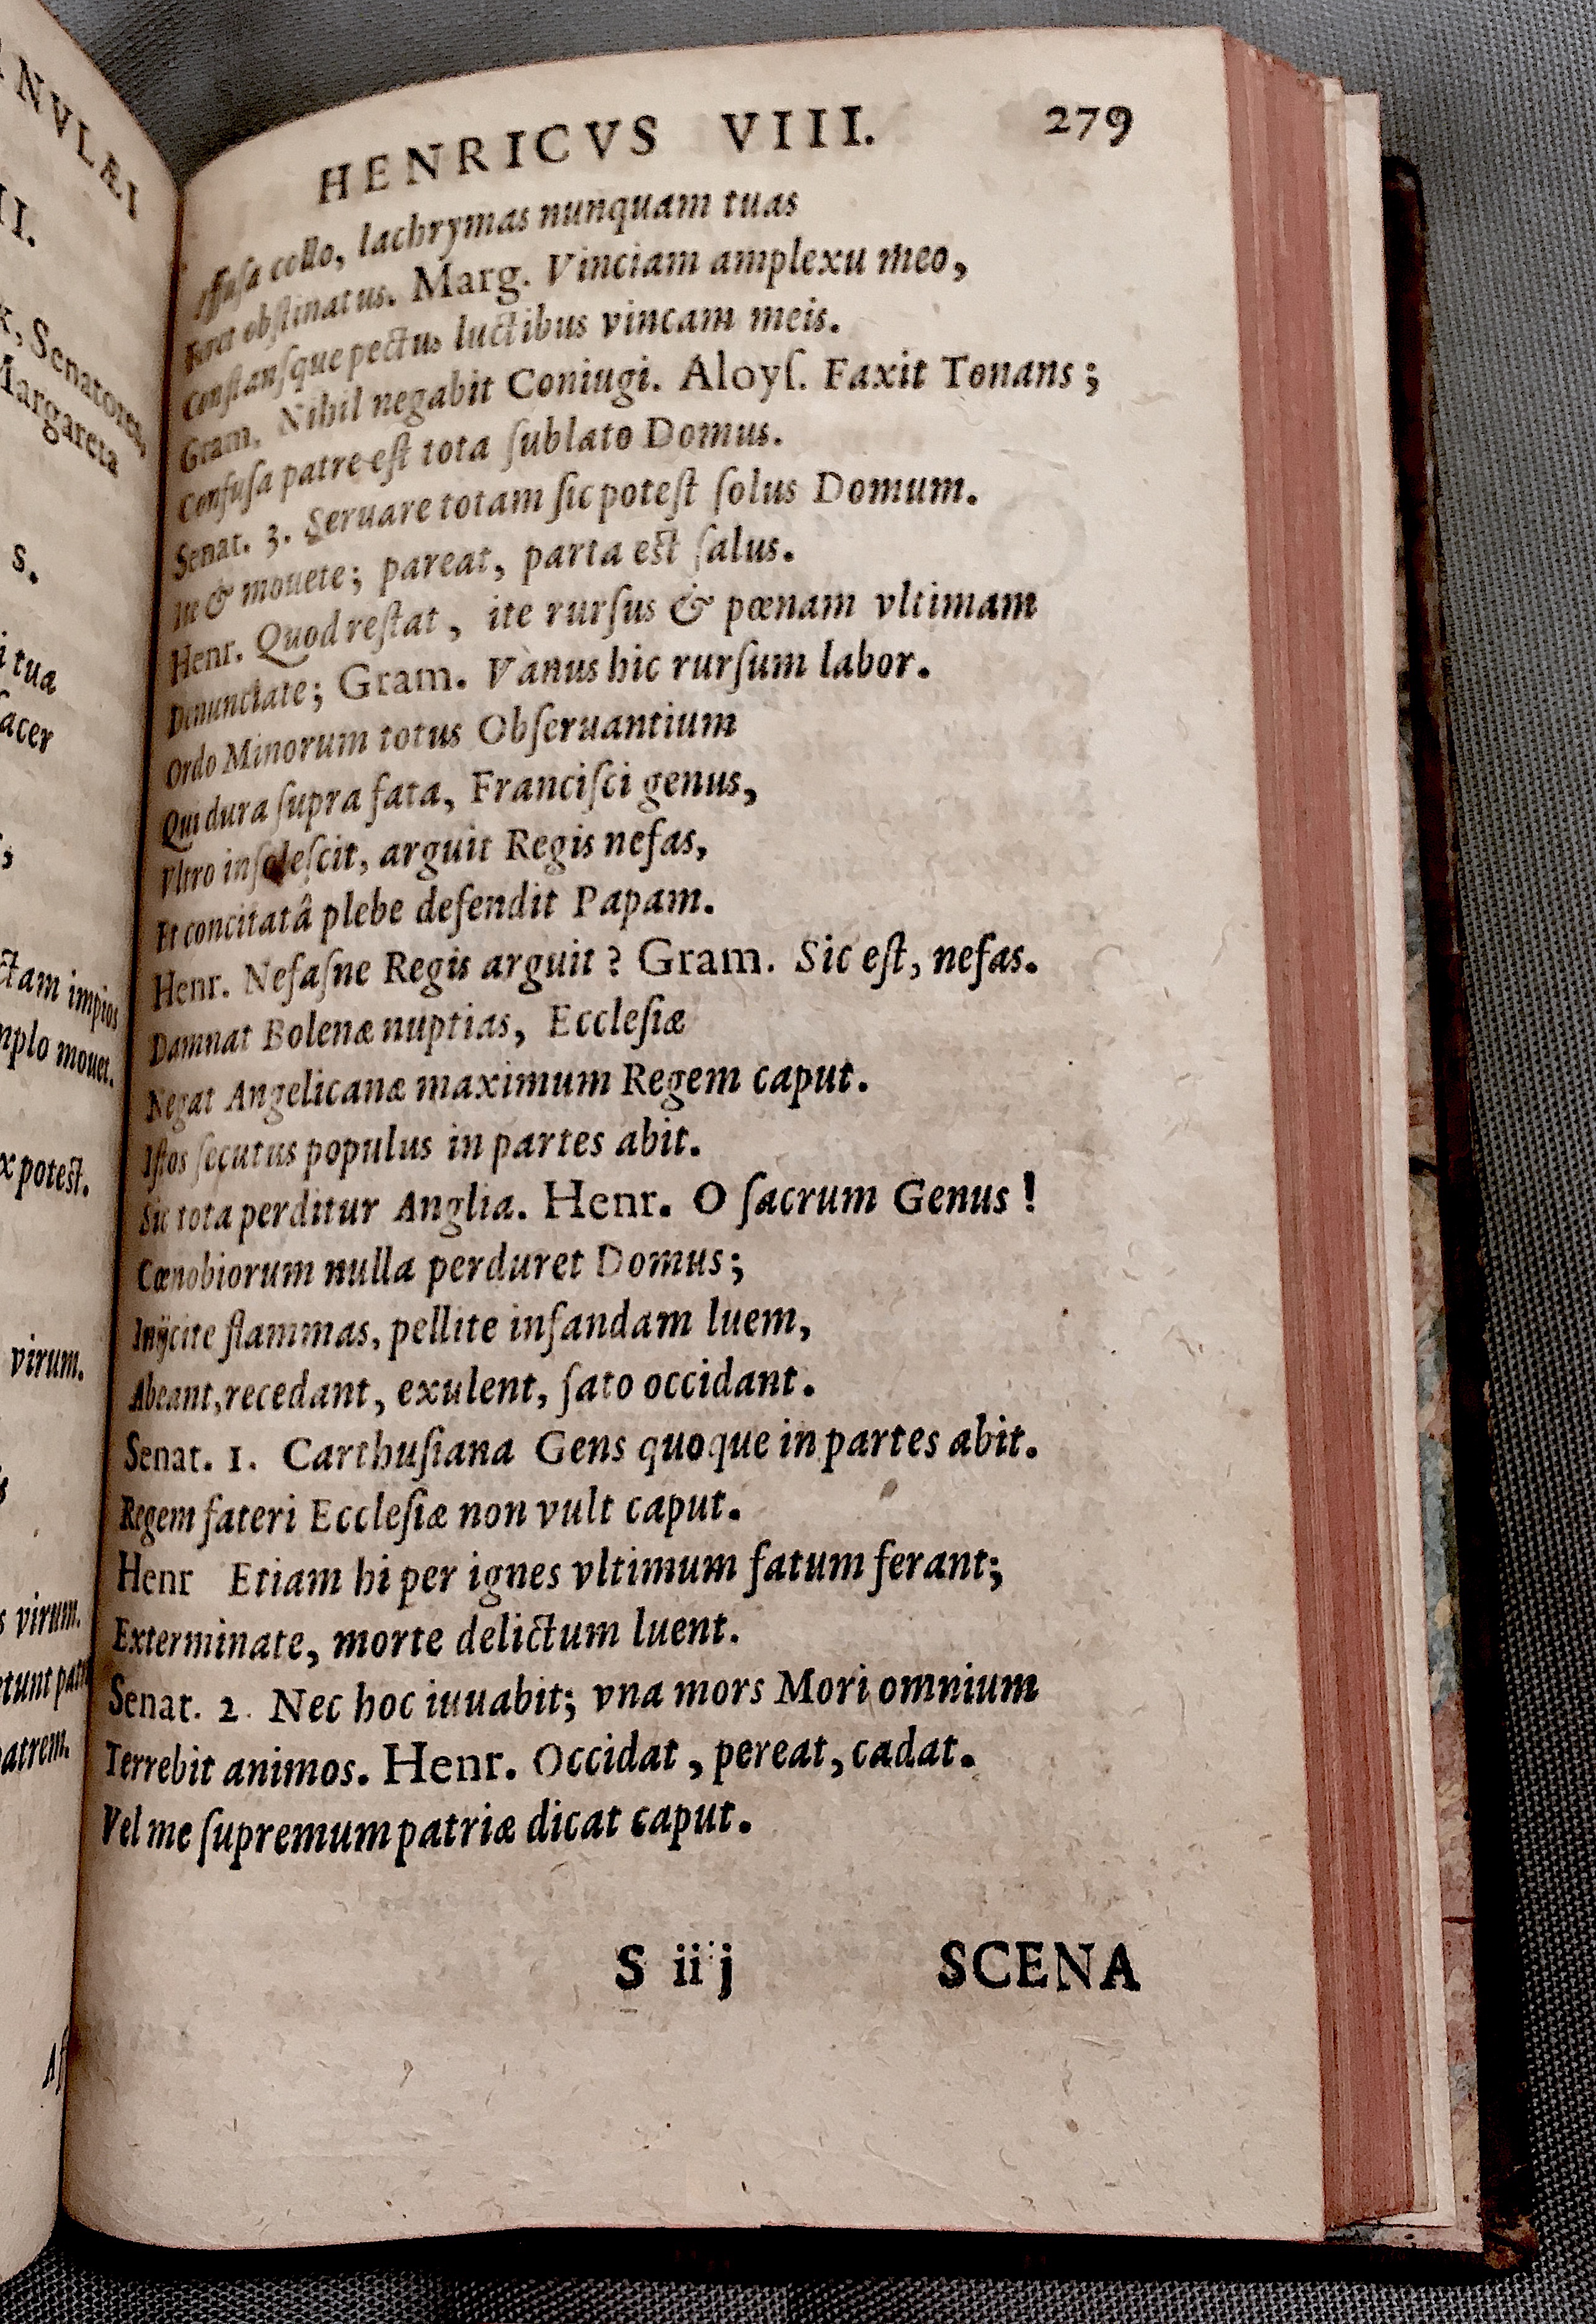 NVLÆI
II.
, Senatores,
Margareta
s.
i tua
acer
ctam impios
mplo mouet.
x potest.
virum.
s virum.
etunt patri
patrem.
HENRICVS VIII. 279
Affuſa collo, lachrymas nunquam tuas
obſtinatus. Marg. Vinciam amplexu meo,
Conſtanſque pectus luctibus vincam meis.
Gram. Nihil negabit Coniugi. Aloyſ. Faxit Tonans;
Confuſa patre eſt tota ſublato Domus.
Senat. 3. Seruare totam ſic poteſt ſolus Domum.
Ite & mouete; pareat, parta eſt ſalus.
Henr. Quod reſtat, ite rurſus & pœnam vltimam
Denunciate; Gram. Vanus hic rurſum labor.
Ordo Minorum totus Obſeruantium
Qui dura ſupra fata, Franciſci genus,
Vltro inſoleſcit, arguit Regis nefas,
Et concitatâ plebe defendit Papam.
Henr. Nefaſne Regis arguit? Gram. Sic eſt, nefas.
Damnat Bolenæ nuptias, Eccleſiæ
Negat Angelicanæ maximum Regem caput.
Iſtos ſecutus populus in partes abit.
Sic tota perditur Anglia. Henr. O ſacrum Genus!
Cœnobiorum nulla perduret Domus;
Inijcite flammas, pellite infandam luem,
Abeant, recedant, exulent, fato occidant.
Senat. 1. Carthuſiana Gens quoque in partes abit.
Regem fateri Eccleſiæ non vult caput.
Henr Etiam hi per ignes vltimum fatum ferant;
Exterminate, morte delictum luent.
Senat. 2. Nec hoc iuuabit; vna mors Mori omnium
Terrebit animos. Henr. Occidat, pereat, cadat.
Vel me ſupremum patriæ dicat caput.
S iij SCENA